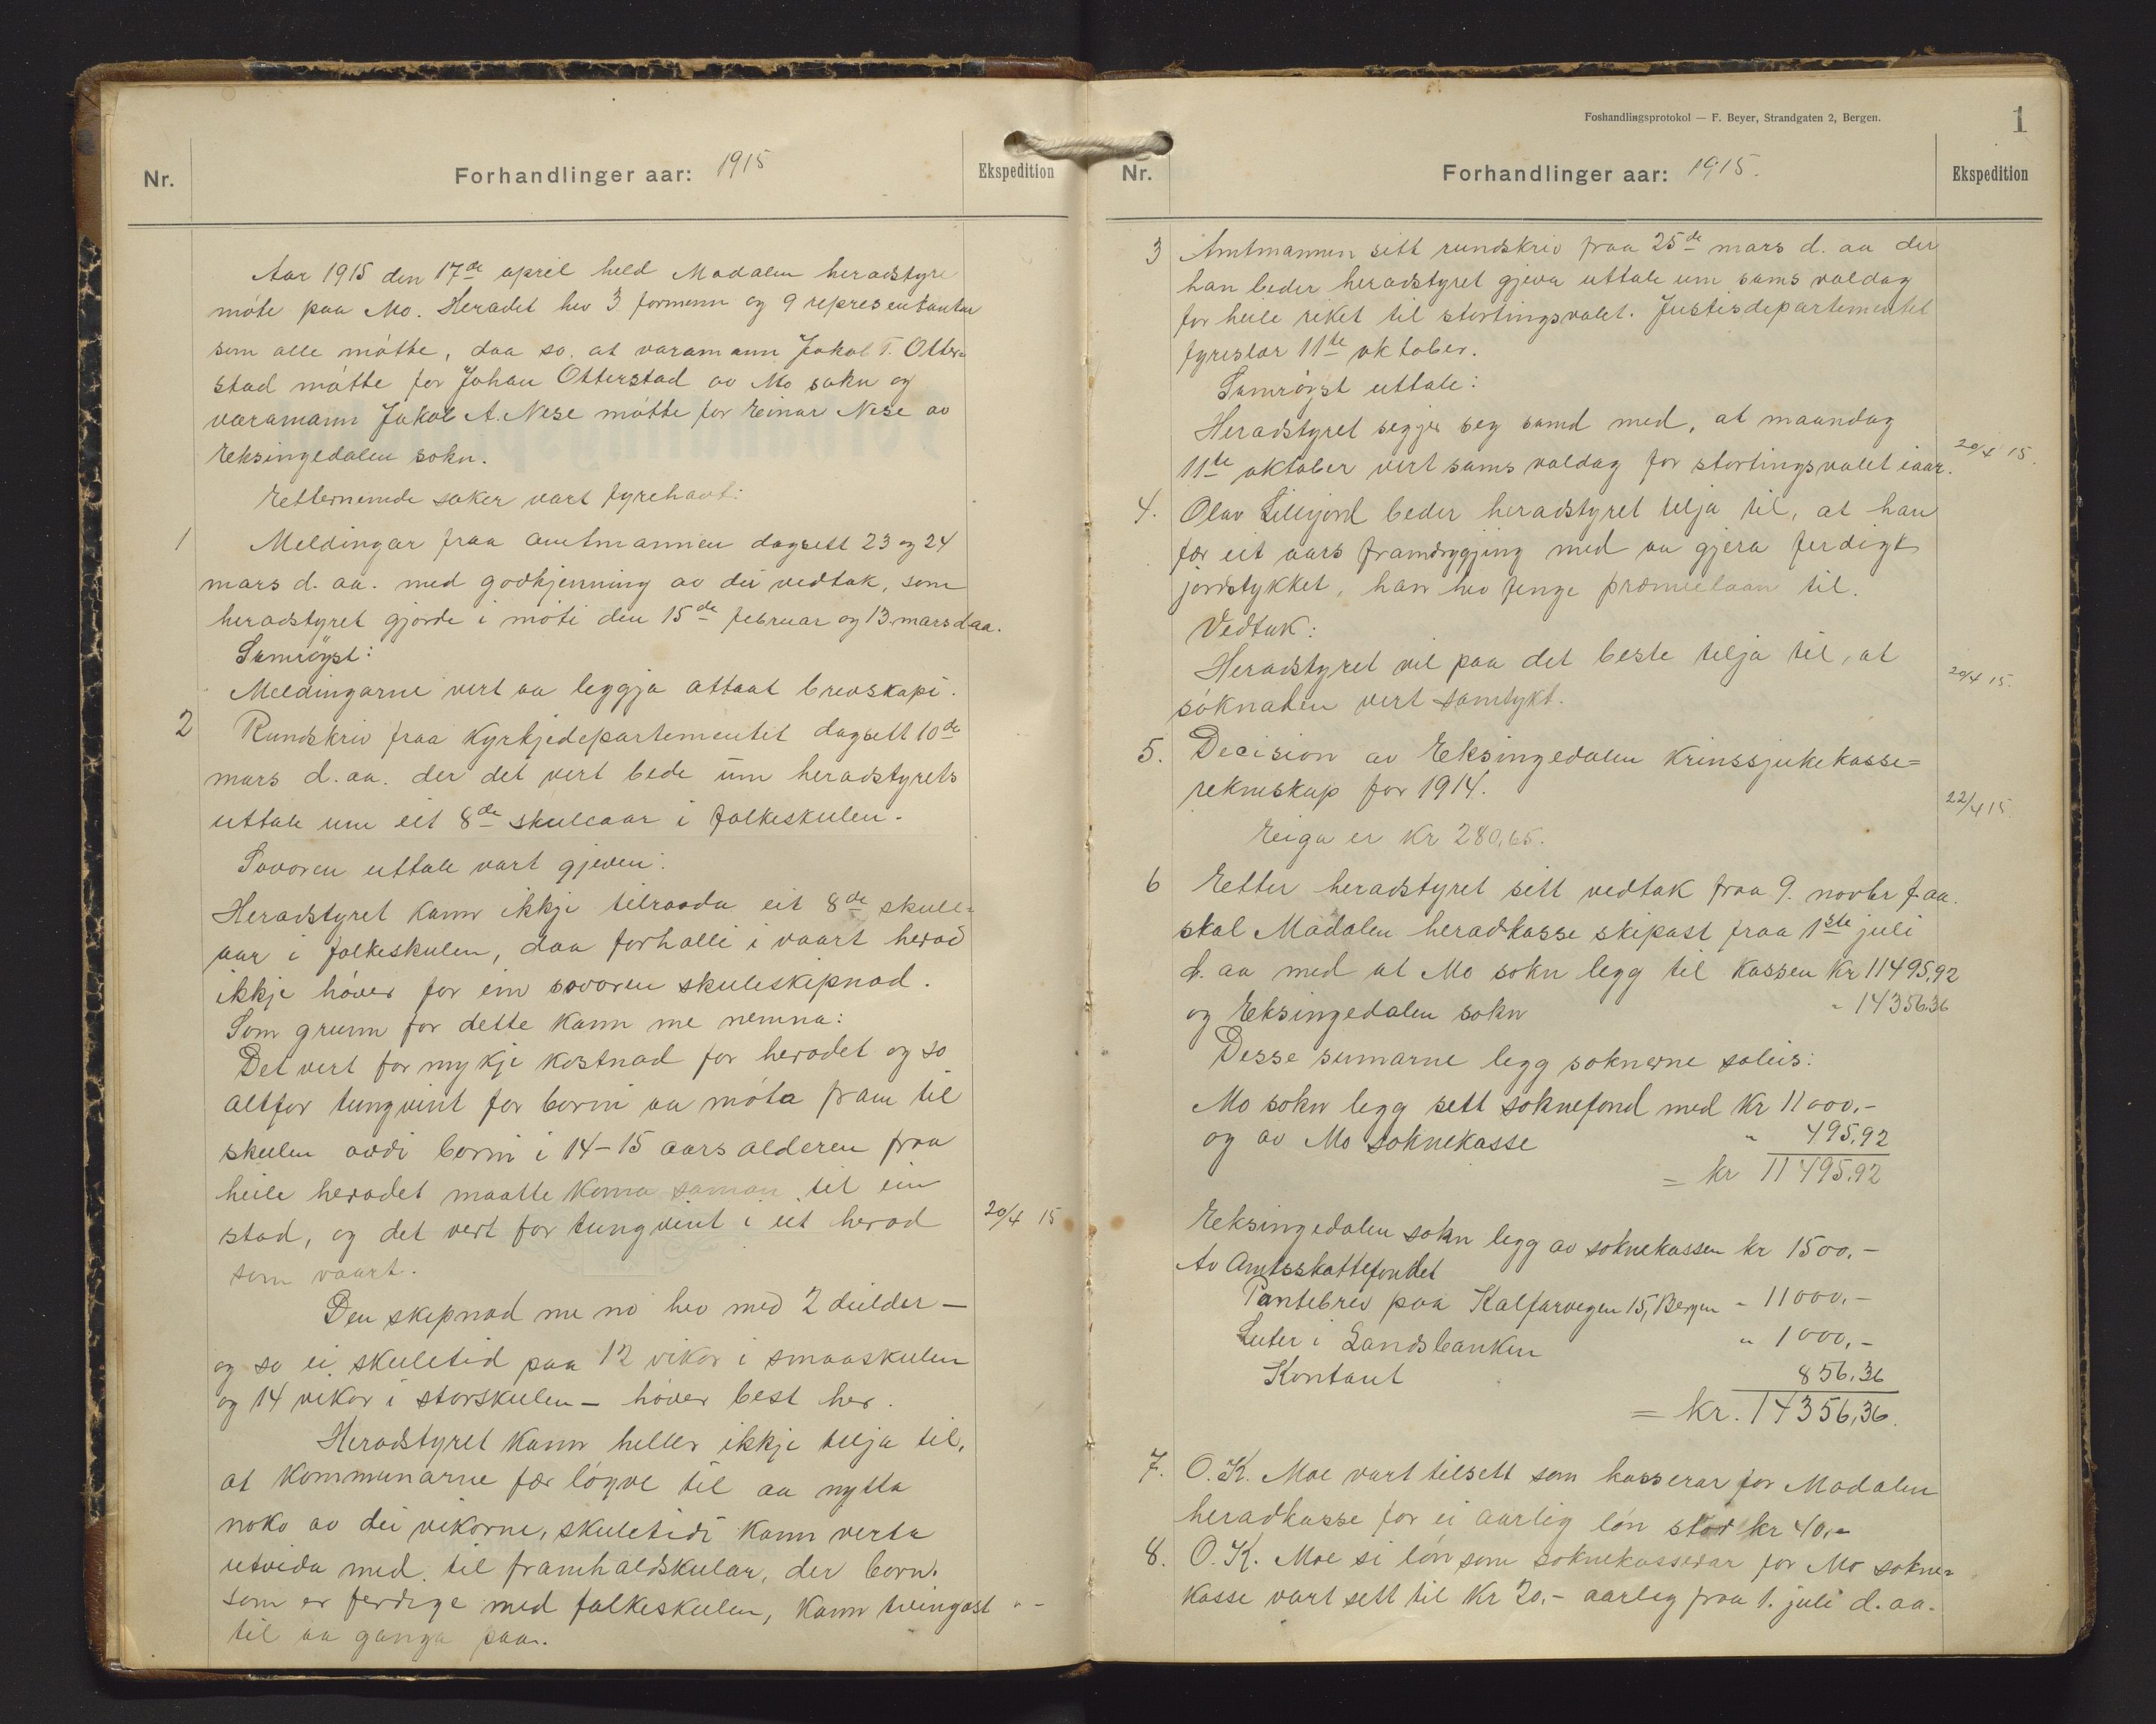 Nr.
Forhandlinger aar: 1915
Ekspedition
Aar 1915 den 17de april held Modalen heradstyre
møte paa Mo. Heradet hev 3 formenn og 9 representantar
som alle møtte, daa so. at varamann Jakob T. Otter-
stad møtte for Johan Otterstad av Mo sokn og
varamann Jakob A. Nese møtte for Einar Nese av
Eksingedalen sokn.
Etternemnde saker vart fyrehavt:
1
Meldingar fraa amtmannen dagsett 23 og 24
mars d. aa. med godkjenning av dei vedtak, som
heradstyret gjorde i møti den 15de februar og 13. mars d aa.
Samrøyst:
Meldingarne vert aa leggja attaat brevskapi.
2
Rundskriv fraa Kyrkjedepartementet dagsett 10de
mars d. aa. der det vert bede um heradstyrets
uttale um eit 8de skuleaar i folkeskulen.
Sovoren uttale vart gjeven:
Heradstyret kann ikkje tilraada eit 8de skule-
aar i folkeskulen, daa forhalli i vaart herad
ikkje høver for ein sovoren skuleskipnad.
Som grunn for dette kann me nemna:
Det vert for mykje kostnad for heradet og so
altfor tungvint for borni aa møta fram til
skulen avdi borni i 14-15 aars alderen fraa
heile heradet maatte koma saman til ein
stad, og det vert for tungvint i eit herad
20/4 15
som vaart.
Den skipnad me no hev med 2 deilder —
og so ei skuletid paa 12 vikor i smaaskulen
og 14 vikor i storskulen — høver best her.
Heradstyret kann heller ikkje telja til,
at kommunarne fær løyve til aa nytta
noko av dei vikorne, skuletidi kann verta
utvida med. til framhaldskular, der born.
som er ferdige med folkeskulen, kann tvingast
" -
til aa ganga paa.
Foshandlingsprotokol — F. Beyer, Strandgaten 2, Bergen.
1
Nr.
Forhandlinger aar: 1915.
Ekspedition
3
Amtmannen sitt rundskriv fraa 25de mars d. aa der
han beder heradstyret gjeva uttale um sams valdag
for heile riket til stortingsvalet. Justisdepartementet
fyreslær 11te oktober.
Samrøyst uttale:
Heradstyret segjer seg samd med, at maandag
11te oktober vert sams valdag for stortingsvalet iaar.
20/4 15.
4.
Olav Lillejord beder heradstyret telja til, at han
fær eit aars framdrygjing med aa gjera ferdigt
jordstykket, han hev fenge præmielaan til.
Vedtak:
Heradstyret vil paa det beste telja til, at
20/4 15.
søknaden vert samtykt.
5.
Decision av Eksingedalen krinssjukekasse=
rekneskap for 1914.
22/4 15.
Eiga er kr 280,65.
6
Etter heradstyret sitt vedtak fraa 9. novbr f. aa.
skal Modalen heradkasse skipast fraa 1ste juli
d. aa med at Mo sokn legg til kassen kr 11495,92
og Eksingedalen sokn " 14356,36
Desse sumarne legg soknerne soleis:
Mo sokn legg sett soknefond med kr 11000.-
og av Mo soknekasse " 495,92
= kr 11495,92
Eksingedalen sokn legg av soknekassen kr 1500.-
Av Amtsskattefondet
Pantebrev paa Kalfarvegen 15, Bergen " 11000.-
Luter i Landsbanken " 1000,-
Kontant 856,36
= kr. 14356,36.
7.
O. K. Moe vart tilsett som kasserar for Modalen
heradkasse for ei aarlig løn stor kr 40.-
8.
O. K. Moe si løn som soknekasserar for Mo sokne-
kasse vart sett til kr 20.- aarleg fraa 1. juli d. aa.